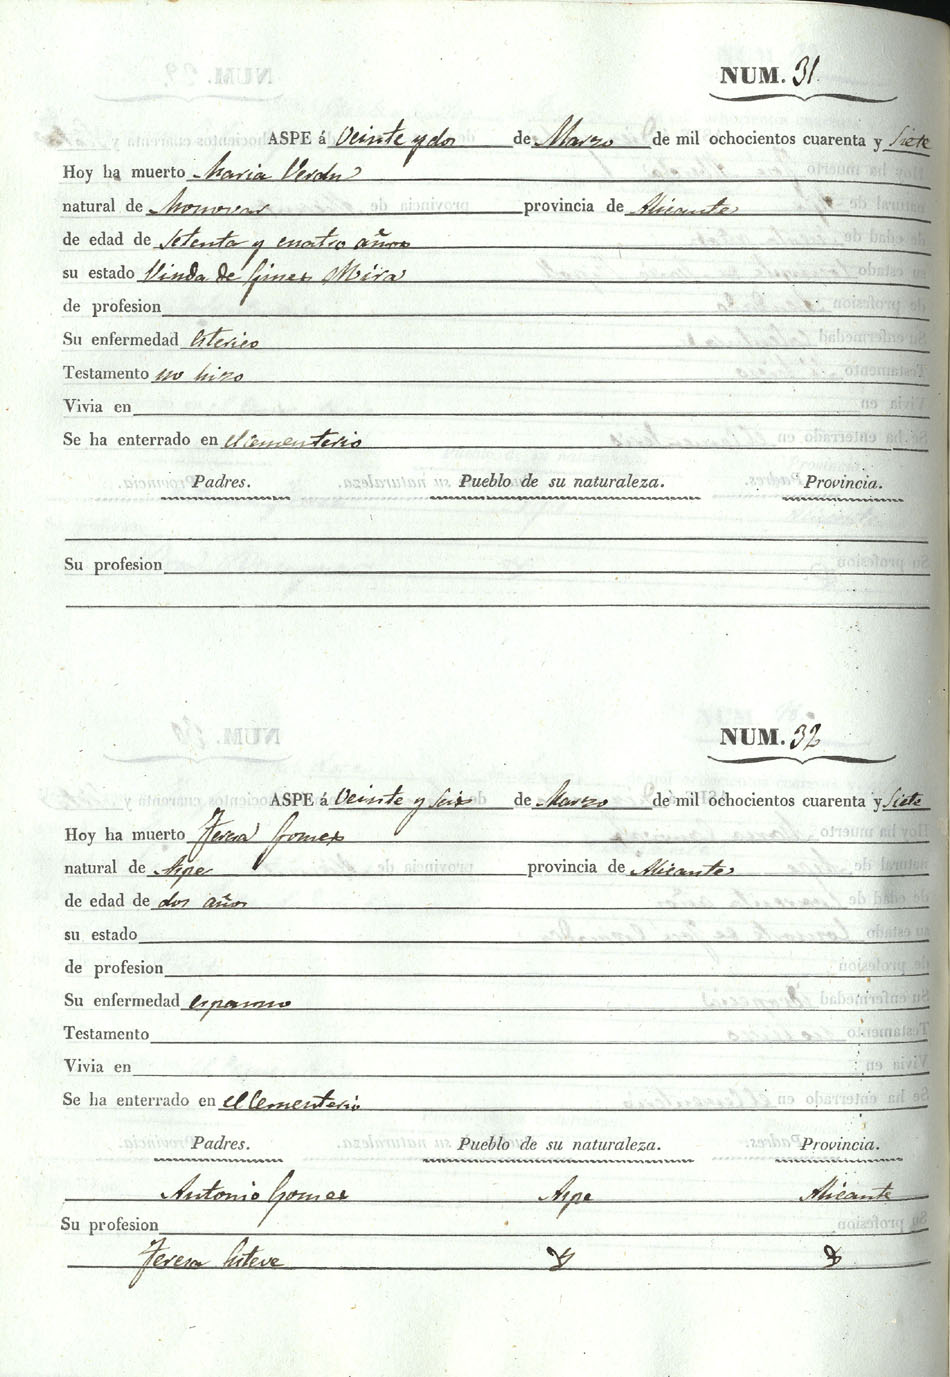 NUM. 31
ASPE á Veinte y dos de Marzo de mil ochocientos cuarenta y Siete
Hoy ha muerto Maria Verdu
natural de Monovar provincia de Alicante
de edad de Setenta y cuatro años
su estado Viuda de Gines Mira
de profesion
Su enfermedad isterico
Testamento no hizo
Vivia en
Se ha enterrado en el Cementerio
Padres. Pueblo de su naturaleza. Provincia.
Su profesion
NUM. 32
ASPE á Veinte y Seis de Marzo de mil ochocientos cuarenta y Siete
Hoy ha muerto Teresa Gomez
natural de Aspe provincia de Alicante
de edad de dos años
su estado
de profesion
Su enfermedad espasmo
Testamento
Vivia en
Se ha enterrado en el Cementerio
Padres. Pueblo de su naturaleza. Provincia.
Antonio Gomez Aspe Alicante
Su profesion
Teresa Esteve